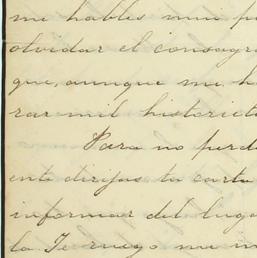 me hables mui p
olvidar el consagra
que, aunque me h
rar mil historieta
Para no perd
ente dirijas tu carta
informar del luga
la Te ruego me in